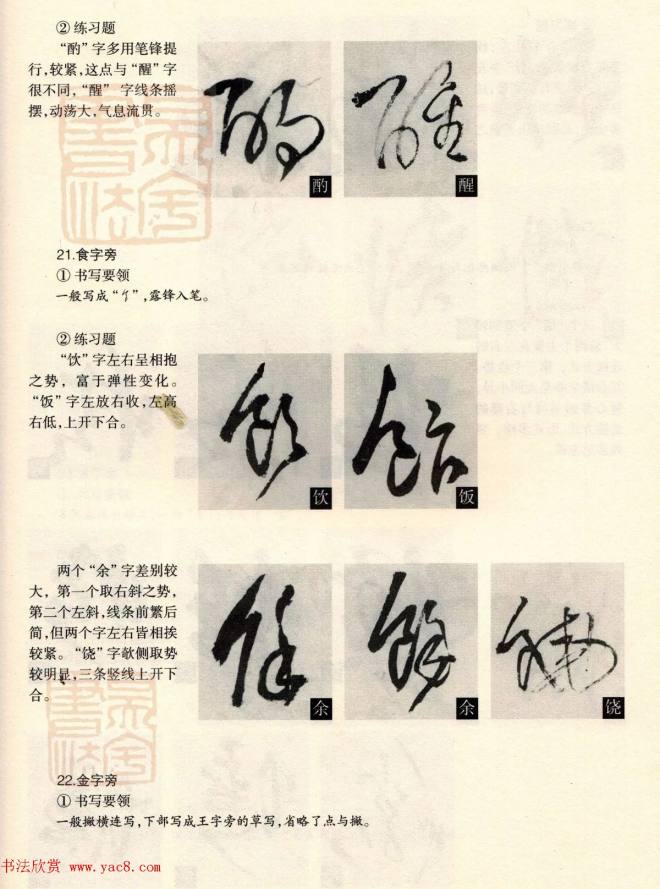 ② 练习题
“酌”字多用笔锋提
行,较紧,这点与“醒”字
很不同,“醒” 字线条摇
摆,动荡大,气息流贯。
酌
醒
21.食字旁
① 书写要领
一般写成“饣”,露锋入笔。
② 练习题
“饮”字左右呈相抱
之势，富于弹性变化。
“饭”字左放右收,左高
右低,上开下合。
饮
饭
两个“余”字差别较
大，第一个取右斜之势,
第二个左斜,线条前繁后
简,但两个字左右皆相挨
较紧。“饶”字欹侧取势
较明显,三条竖线上开下
合。
余
余
饶
22.金字旁
① 书写要领
一般撇横连写,下部写成王字旁的草写,省略了点与撇。
书法欣赏 www.yac8.com